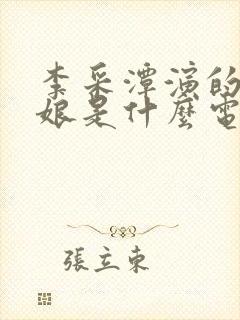 李采潭演的
娘是什麼電
張立東